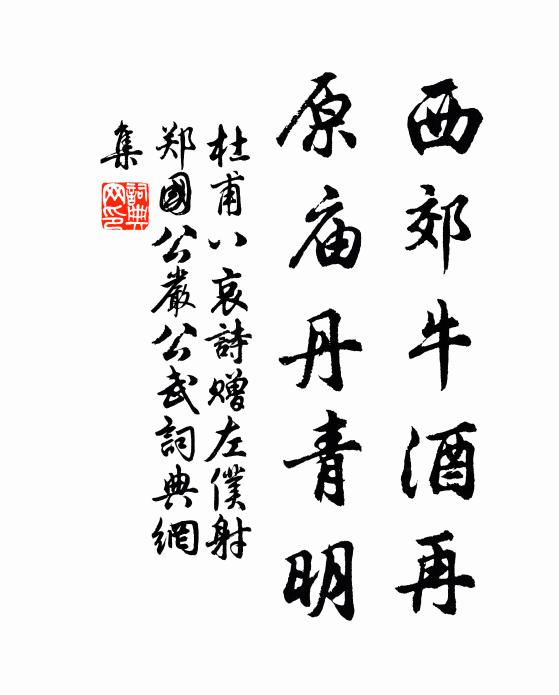 西郊牛酒再
原庙丹青明
杜甫八哀詩赠左僕射
郑國公嚴公武詞典網
集
詞典网印